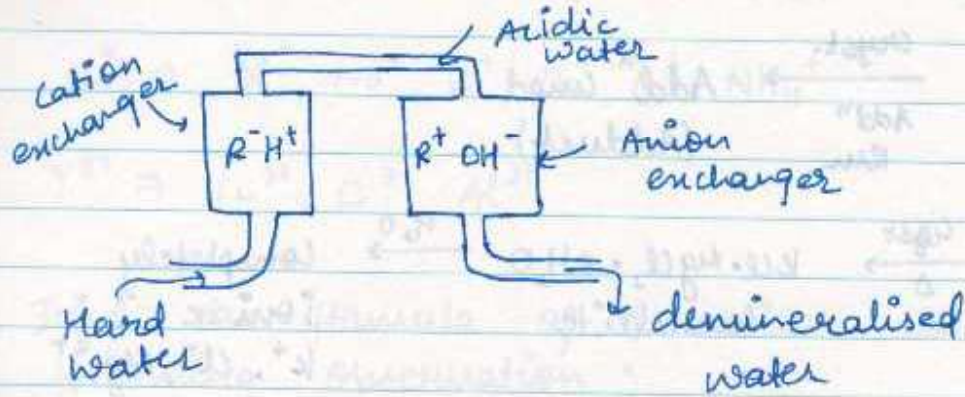 Acidic
water
Cation
exchanger
R⁻H⁺
R⁺ OH⁻
Anion
exchanger
Hard
water
demineralised
water